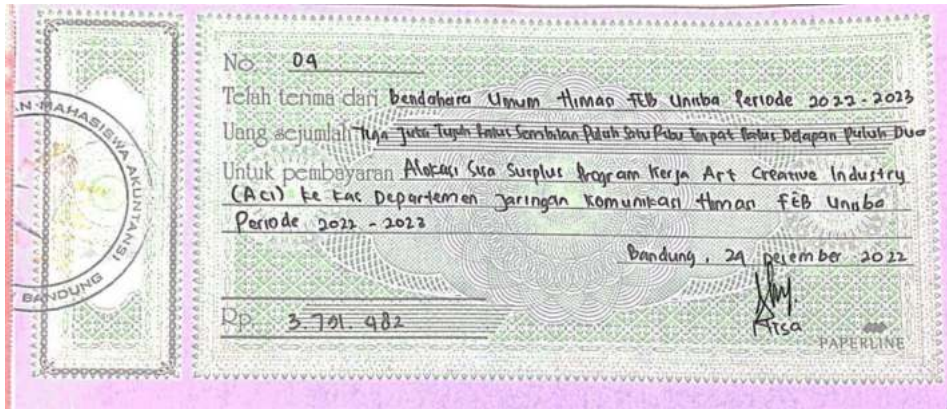 N MAHASISWA AKUNTANSI
BANDUNG
No. 09
Telah terima dari bendahara Umum Himan FEB Unisba Periode 2022-2023
Uang sejumlah Tiga Juta Tujuh Ratus Sembilan Puluh Satu Ribu Empat Ratus Delapan Puluh Dua
Untuk pembayaran Alokasi Sisa Surplus Program Kerja Art Creative Industry
(ACI) ke kas Departemen Jaringan Komunikasi Himan FEB Unisba
Periode 2022 - 2023
Bandung, 29 Desember 2022
Rp. 3.791.482
Aisa
PAPERLINE